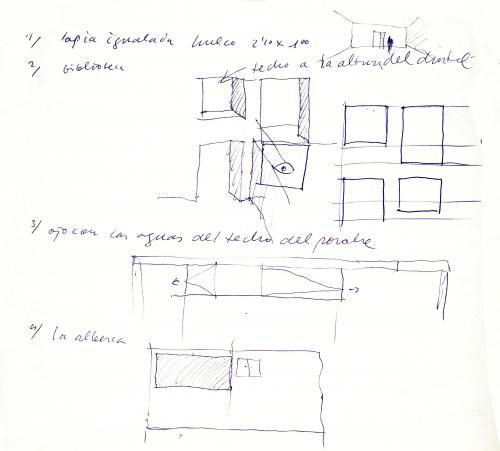 1/ tapia igualada hueco 2'10 x 1'00
2/ biblioteca
techo a la altura del dintel
3/ ojo con las aguas del techo del porche
4/ la alberca